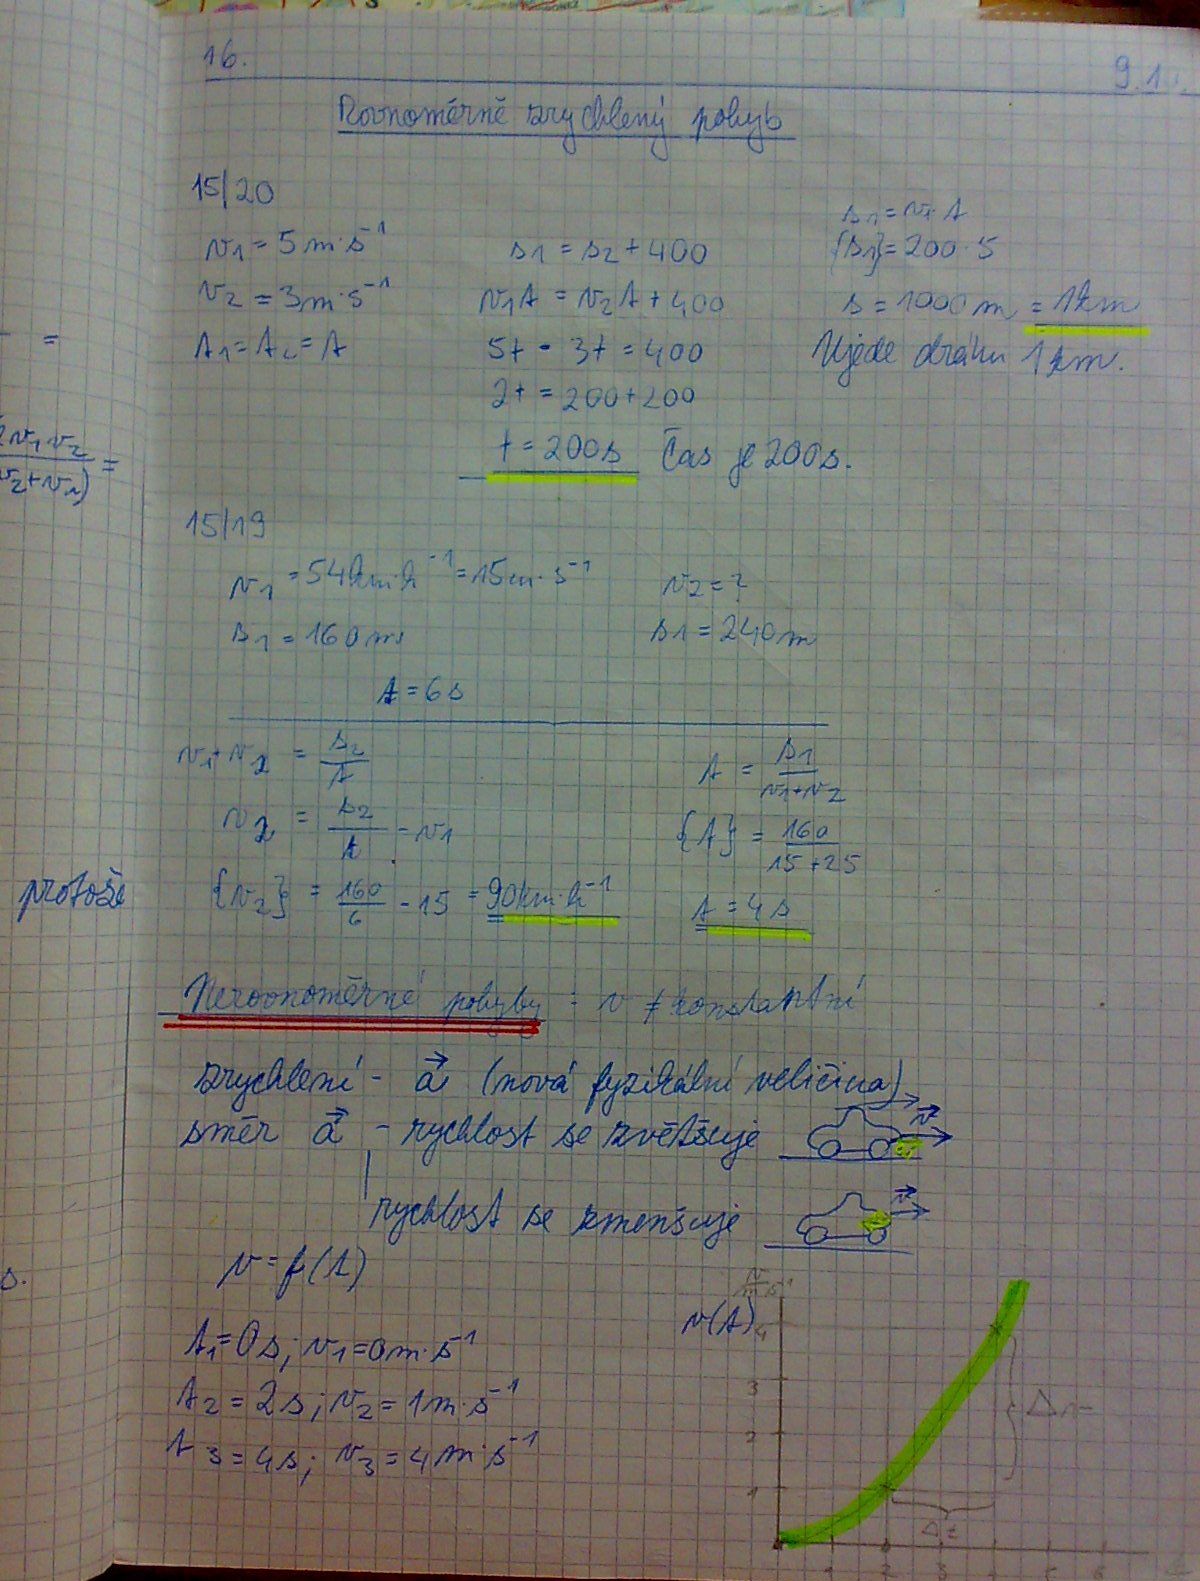 16.
9.1.
Rovnoměrně zrychlený pohyb
15/20
v1 = 5 m·s⁻¹
v2 = 3 m·s⁻¹
t1 = t2 = t
s1 = s2 + 400
v1t = v2t + 400
5t - 3t = 400
2t = 200+200
t = 200s Čas je 200s.
s1 = v1 t
{s1} = 200·5
s = 1000 m = 1km
Ujede dráhu 1 km.
=
2v1v2
v2+v1) =
15/19
v1 = 54km·h⁻¹ = 15m·s⁻¹ v2 = ?
s1 = 160m s1 = 240m
t = 6s
v1+v2 = s2/t
v2 = s2/t - v1
{v2} = 160/6 - 15 = 90km·h⁻¹
t = s1/v1+v2
{t} = 160/15+25
t = 4s
protože
Nerovnoměrné pohyby : v ≠ konstantní
zrychlení - a⃗ (nová fyzikální veličina)
směr a⃗ - rychlost se zvětšuje
v⃗
rychlost se zmenšuje
v⃗
v = f(t)
s.
t1 = 0s; v1 = 0m·s⁻¹
t2 = 2s; v2 = 1m·s⁻¹
t3 = 4s; v3 = 4m·s⁻¹
v/m·s⁻¹
v(t)
4
3
2
1
Δv
Δt
1 2 3 5 6